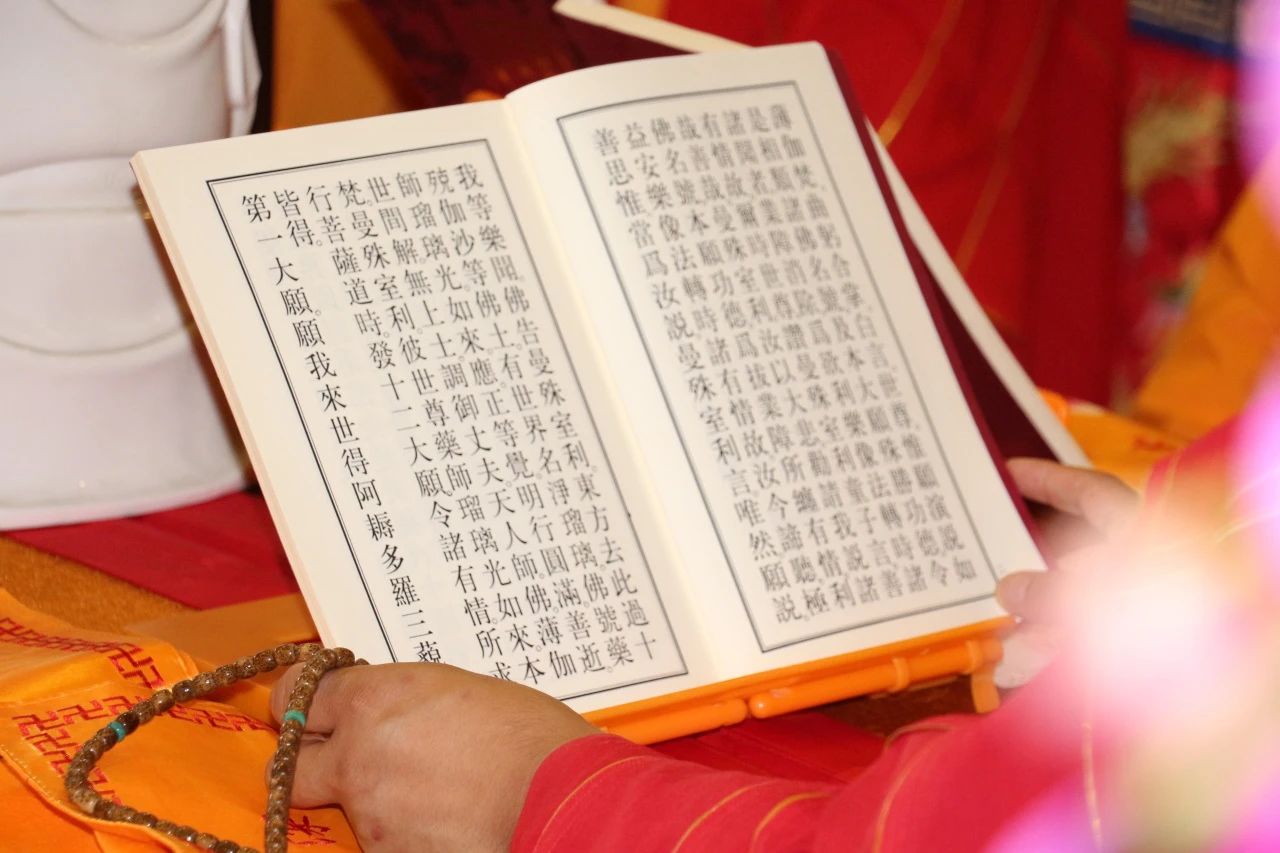 薄伽梵。曲躬合掌白言。世尊。惟願演說如
是相類諸佛名號。及本大願殊勝功德。令
諸聞者業障消除。爲欲利樂像法轉時諸
有情故。爾時世尊讚曼殊室利童子言。善
哉善哉。曼殊室利。汝以大悲勸請我說諸
佛名號。本願功德。爲拔業障所纏有情。利
益安樂像法轉時諸有情故。汝今諦聽。極
善思惟。當爲汝說。曼殊室利言。唯然願說。
我等樂聞。佛告曼殊室利。東方去此過十
殑伽沙等佛土。有世界名淨瑠璃。佛號藥
師瑠璃光如來應正等覺明行圓滿。善逝
世間解無上士。調御丈夫。天人師。佛。薄伽
梵。曼殊室利。彼世尊藥師瑠璃光如來。本
行菩薩道時。發十二大願。令諸有情。所求
皆得。
第一大願。願我來世得阿耨多羅三藐